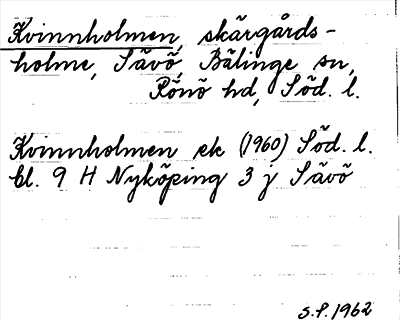 Kvinnholmen, skärgårds-
holme, Sävö, Bälinge sn,
Rönö hd, Söd. l.
Kvinnholmen ek (1960) Söd. l.
bl. 9 H Nyköping 3 j Sävö
S.P. 1962